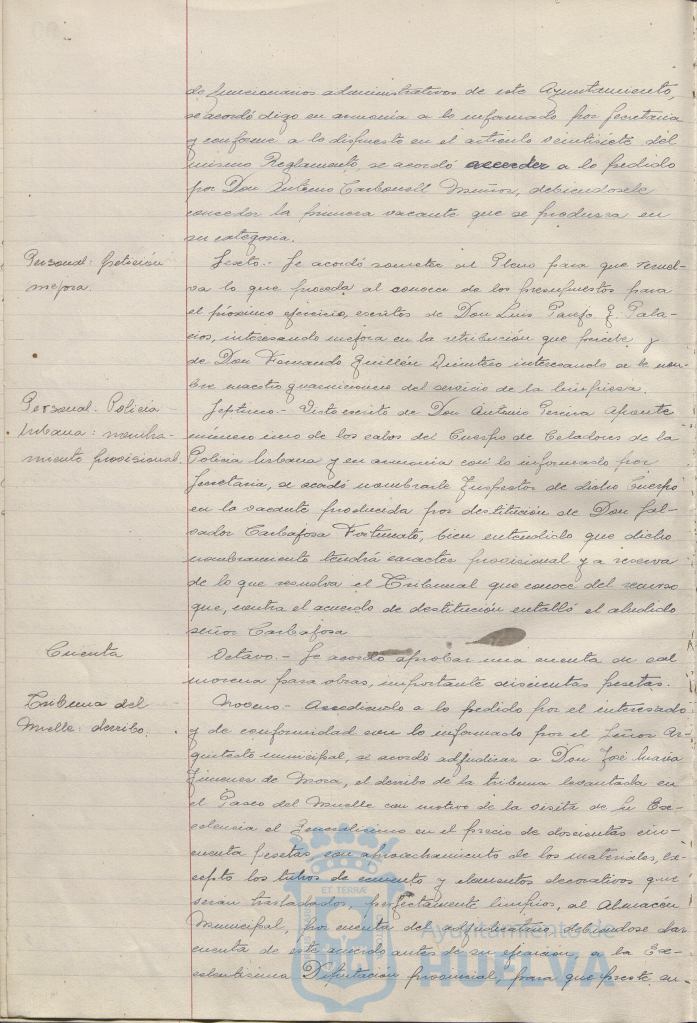 de funcionarios administrativos de este Ayuntamiento,
se acordó digo en armonía a lo informado por Secretaría
y conforme a lo dispuesto en el artículo veintisiete del
mismo Reglamento, se acordó acceder a lo pedido
por Don Antonio Carbonell Muñoz, debiendosele
conceder la primera vacante que se produzca en
su categoria.
Personal: petición
mejora.
Sexto.- Se acordó someter al Pleno para que resuel-
va lo que proceda al conocer de los Presupuestos para
el próximo ejercicio, escritos de Don Luis Parejo G. Pala-
cios, interesando mejora en la retribución que percibe y
de Don Fernando Guillén Quintero interesando se le nom-
bre maestro guarnicionero del servicio de la limpieza.
Personal. Policia
Urbana: nombra-
miento provisional.
Septimo.- Visto escrito de Don Antonio Pereira
número uno de los cabos del Cuerpo de Celadores de la
Policia Urbana y en armonia con lo informado por
Secretaría, se acodó nombrarle Inspector de dicho Cuerpo
en la vacante producida por destitución de Don Sal-
vador Carbajosa Fortunato, bien entendido que dicho
nombramiento tendrá caracter provisional y a reserva
de lo que resuelva el Tribunal que conoce del recurso
que, contra el acuerdo de destitución entabló el aludido
señor Carbajosa
Cuenta
Octavo.- Se acordó aprobar una cuenta de cal
morena para obras, importante pesetas.
Tribuna del
Muelle: derribo.
Noveno- Accediendo a lo pedido por el interesado
y de conformidad con lo informado por el Señor Ar-
quitecto municipal, se acordó adjudicar a Don José Maria
Jimenes de Mora, el derribo de la tribuna levantada en
el Paseo del Muelle con motivo de la visita de Su Ex-
celencia el Generalísimo en el precio de doscientas cin-
cuenta pesetas con aprovechamiento de los materiales, ex-
cepto los tubos de cemento y elementos decorativos que
seran trasladados, perfectamente limpios, al Almacén
Municipal, por cuenta del adjudicatario debiendose dar
cuenta de este acuerdo antes de su ejecución a la Ex-
celentisima Diputación provincial, para que preste su-
ET TERRÆ
Ayuntamiento de
HUELVA